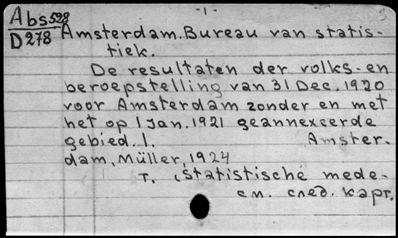 -1-
Abs 528
D278
Amsterdam. Bureau van statis-
tiek.
De resultaten der volks-en
beroepstelling van 31 Dec. 1920
voor Amsterdam zonder en met
het op 1 Jan. 1921 geannexeerde
gebied. 1. Amster-
dam, Müller, 1924
т. (statistische mede-
см. след. карт.